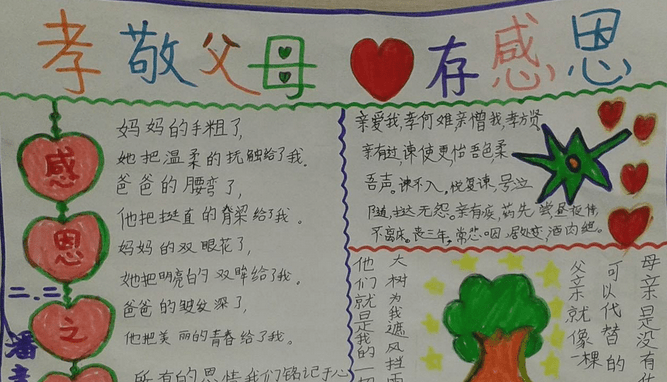 孝敬父母 存感恩
感
恩
之
二.二
潘
妈妈的手粗了,
她把温柔的抚触给了我.
爸爸的腰弯了,
他把挺直的脊梁给了我.
妈妈的双眼花了,
她把明亮的双眸给了我.
爸爸的皱纹深了,
他把美丽的青春给了我.
所有的恩情我们铭记于心
亲爱我,孝何难,亲憎我,孝方贤
亲有过,谏使更,怡吾色,柔
吾声.谏不入.悦复谏.号泣
随,挞无怨.亲有疾,药先尝,昼夜侍,
不离床.丧三年.常悲咽.居处变,酒肉绝.
母亲是没有
可以代替的
父亲就像一棵
大树为我遮风挡雨
他们就是我的一切